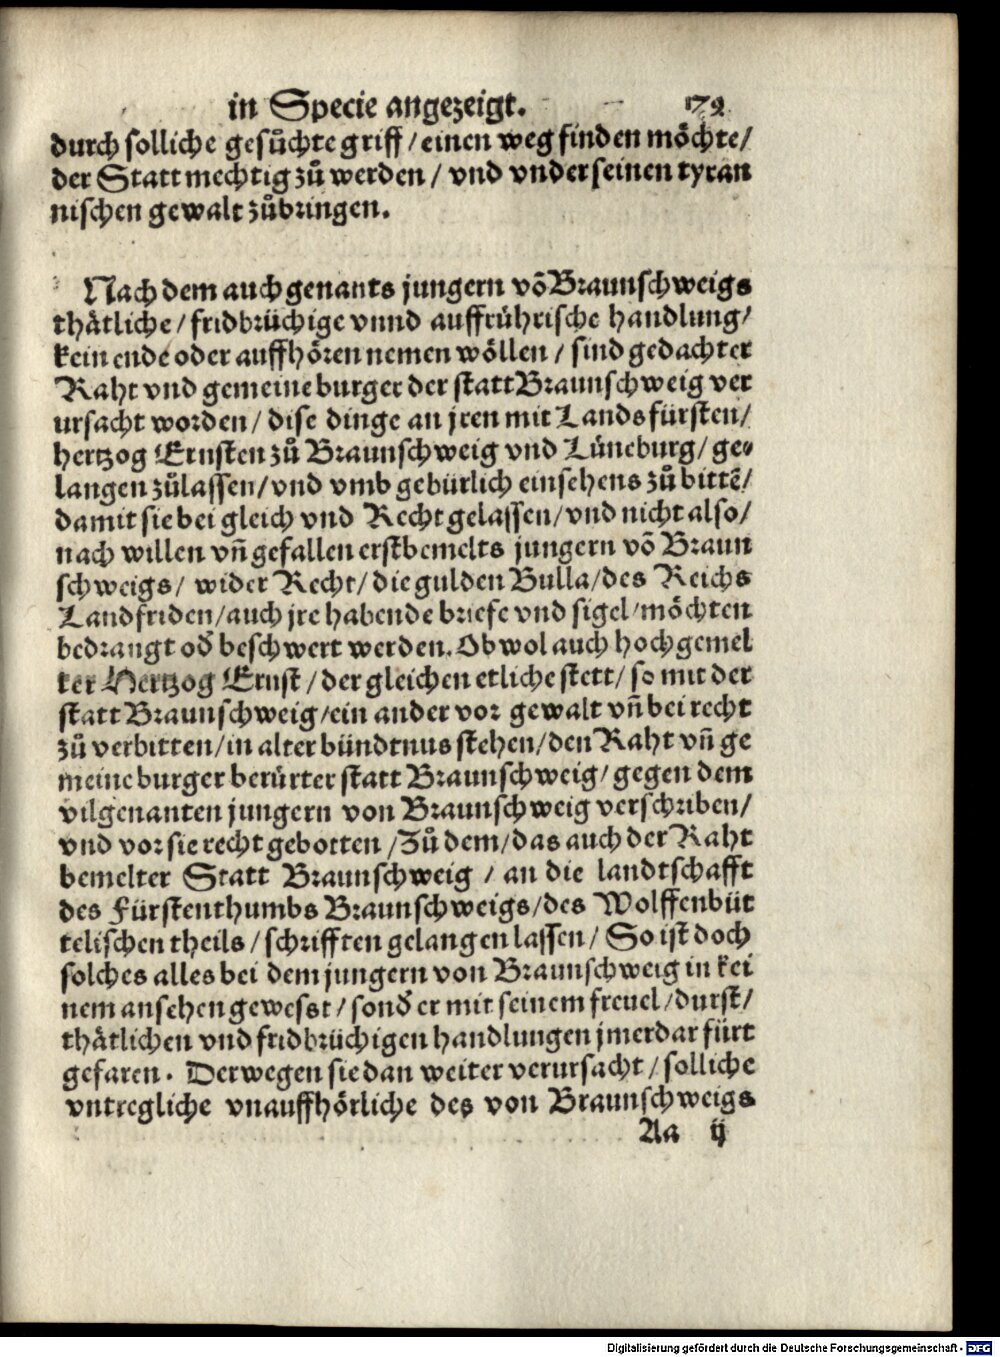 in Specie angezeigt. 172
durch solliche gesůchte griff / einen weg finden möchte/
der Statt mechtig zů werden / vnd vnder seinen tyran
nischen gewalt zůbringen.
Nach dem auch genants jungern võ Braunschweigs
thätliche / fridbrüchige vnnd auffrührische handlung/
kein ende oder auffhören nemen wöllen / sind gedachter
Raht vnd gemeine burger der statt Braunschweig ver
ursacht worden / dise dinge an jren mit Landsfürsten/
hertzog Ernsten zů Braunschweig vnd Lüneburg / ge-
langen zůlassen/vnd vmb gebürlich einsehens zů bittē/
damit sie bei gleich vnd Recht gelassen/vnd nicht also/
nach willen vñ gefallen erstbemelts jungern võ Braun
schweigs/ wider Recht/die gulden Bulla/des Reichs
Landfriden/auch jre habende briefe vnd sigel/möchten
bedrangt oď beschwert werden. Ob wol auch hochgemel
ter Hertzog Ernst / der gleichen etliche stett/ so mit der
statt Braunschweig/ein ander vor gewalt vñ bei recht
zů verbitten/in alter bündtnus stehen/den Raht vñ ge
meine burger berürter statt Braunschweig/gegen dem
vilgenanten jungern von Braunschweig verschriben/
vnd vor sie recht gebotten /Zů dem/das auch der Raht
bemelter Statt Braunschweig / an die landtschafft
des Fürstenthumbs Braunschweigs/des Wolffenbüt
telischen theils / schrifften gelangen lassen/ So ist doch
solches alles bei dem jungern von Braunschweig in kei
nem ansehen gewesst / sonď er mit seinem freuel/durst/
thätlichen vnd fridbrüchigen handlungen jmerdar fürt
gefaren. Derwegen sie dan weiter verursacht / solliche
vntregliche vnauffhörliche des von Braunschweigs
Aa ij
Digitalisierung gefördert durch die Deutsche Forschungsgemeinschaft - DFG